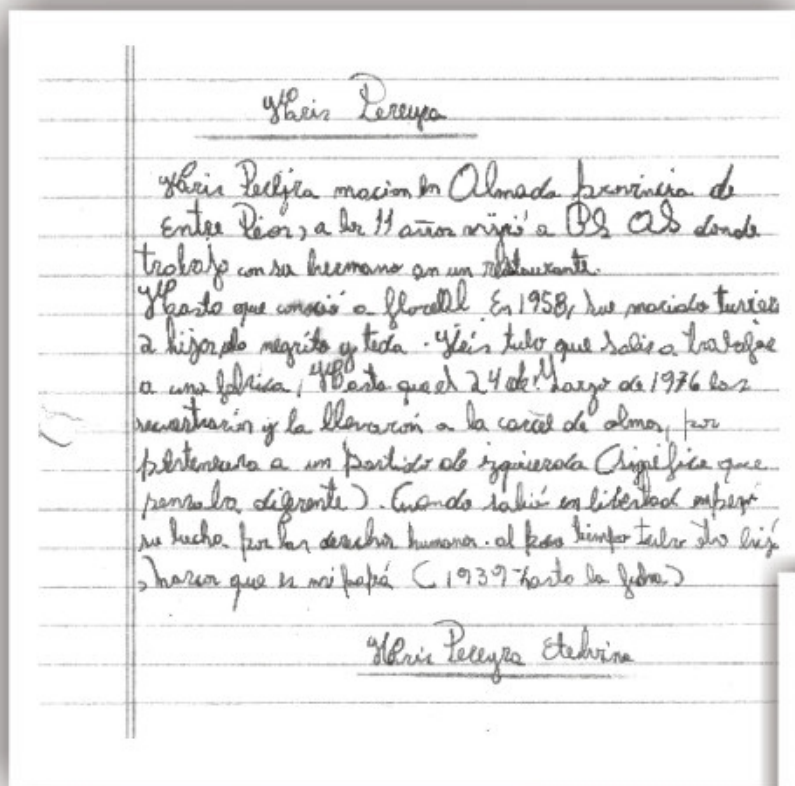 Iris Pereyra
Iris Pereyra nacion en Almada provincia de
Entre Rios, a los 11 años viajó a BS AS donde
trabajo con su hermano en un restaurante.
Hasta que conoció a En 1958, sus
2 hijos, el negrito y teda. Iris tubo que salir a trabajar
a una fabrica, Hasta que el 24 de Marzo de 1976 la
secuestrarón y la llevarón a la carcel de olmos, por
a un partido de izquierda (significa que
pensaba diferente). Cuando salió en libertad
su lucha por los derechos humanos. al poco timpo tubo otro hijo
, que es mi papá (1939-hasta la fecha)
Iris Pereyra Etelvina